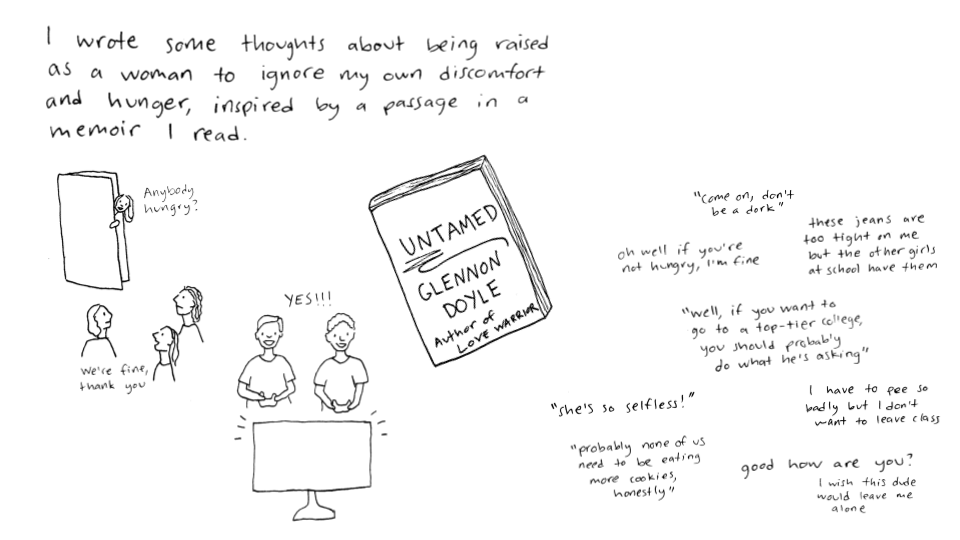 I wrote some thoughts about being raised
as a woman to ignore my own discomfort
and hunger, inspired by a passage in a
memoir I read.
Anybody
hungry?
We're fine,
thank you
YES!!!
UNTAMED
GLENNON
DOYLE
Author of
LOVE WARRIOR
"come on, don't
be a dork"
oh well if you're
not hungry, I'm fine
these jeans are
too tight on me
but the other girls
at school have them
"well, if you want to
go to a top-tier college,
you should probably
do what he's asking"
"she's so selfless!"
I have to pee so
badly but I don't
want to leave class
"probably none of us
need to be eating
more cookies,
honestly"
good how are you?
I wish this dude
would leave me
alone